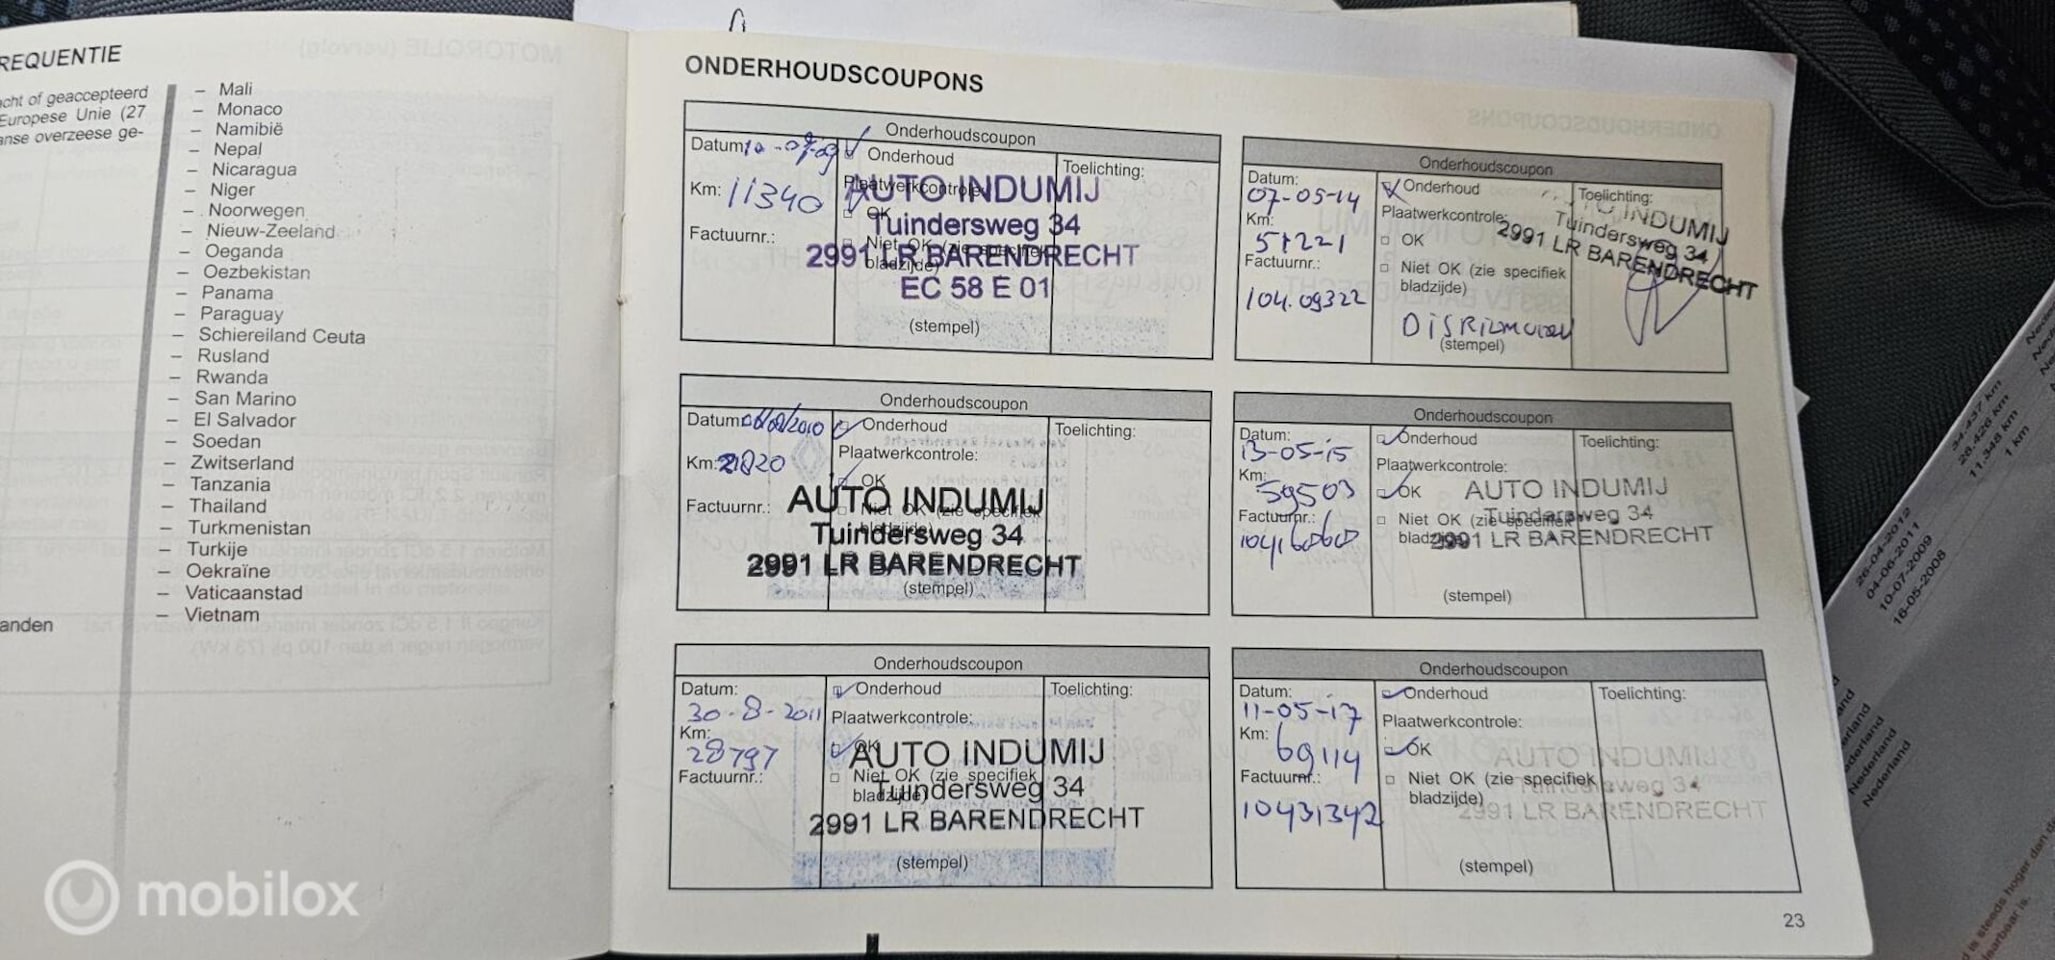 REQUENTIE
cht of geaccepteerd
Europese Unie (27
anse overzeese ge-
– Mali
– Monaco
– Namibië
– Nepal
– Nicaragua
– Niger
– Noorwegen
– Nieuw-Zeeland
– Oeganda
– Oezbekistan
– Panama
– Paraguay
– Schiereiland Ceuta
– Rusland
– Rwanda
– San Marino
– El Salvador
– Soedan
– Zwitserland
– Tanzania
– Thailand
– Turkmenistan
– Turkije
– Oekraïne
– Vaticaanstad
– Vietnam
anden
mobilox
ONDERHOUDSCOUPONS
Onderhoudscoupon
Datum:
Km: 11340
Factuurnr.:
Onderhoud
Plaatwerkcontrole:
OK
Niet OK (zie specifiek
bladzijde)
Toelichting:
AUTO INDUMIJ
Tuindersweg 34
2991 LR BARENDRECHT
EC 58 E 01
(stempel)
Onderhoudscoupon
Datum:
Km:
Factuurnr.:
Onderhoud
Plaatwerkcontrole:
OK
Niet OK (zie specifiek
bladzijde)
Toelichting:
AUTO INDUMIJ
Tuindersweg 34
2991 LR BARENDRECHT
(stempel)
Onderhoudscoupon
Datum:
30-8-2011
Km:
28797
Factuurnr.:
Onderhoud
Plaatwerkcontrole:
OK
Niet OK (zie specifiek
bladzijde)
Toelichting:
AUTO INDUMIJ
Tuindersweg 34
2991 LR BARENDRECHT
(stempel)
Onderhoudscoupon
Datum:
07-05-14
Km:
51221
Factuurnr.:
104.09322
Onderhoud
Plaatwerkcontrole:
OK
Niet OK (zie specifiek
bladzijde)
Toelichting:
INDUMIJ
Tuindersweg 34
2991 LR BARENDRECHT
(stempel)
Onderhoudscoupon
Datum:
13-05-15
Km:
59503
Factuurnr.:
Onderhoud
Plaatwerkcontrole:
OK
Niet OK (zie specifiek
bladzijde)
Toelichting:
AUTO INDUMIJ
Tuindersweg 34
2991 LR BARENDRECHT
(stempel)
Onderhoudscoupon
Datum:
11-05-17
Km:
69114
Factuurnr.:
10431342
Onderhoud
Plaatwerkcontrole:
OK
Niet OK (zie specifiek
bladzijde)
Toelichting:
AUTO INDUMIJ
Tuindersweg 34
2991 LR BARENDRECHT
(stempel)
23
26-04-2012
04-06-2011
10-07-2009
16-05-2008
34.437 km
26.426 km
11.348 km
1 km
Nederland
Nederland
is steeds hoger dan